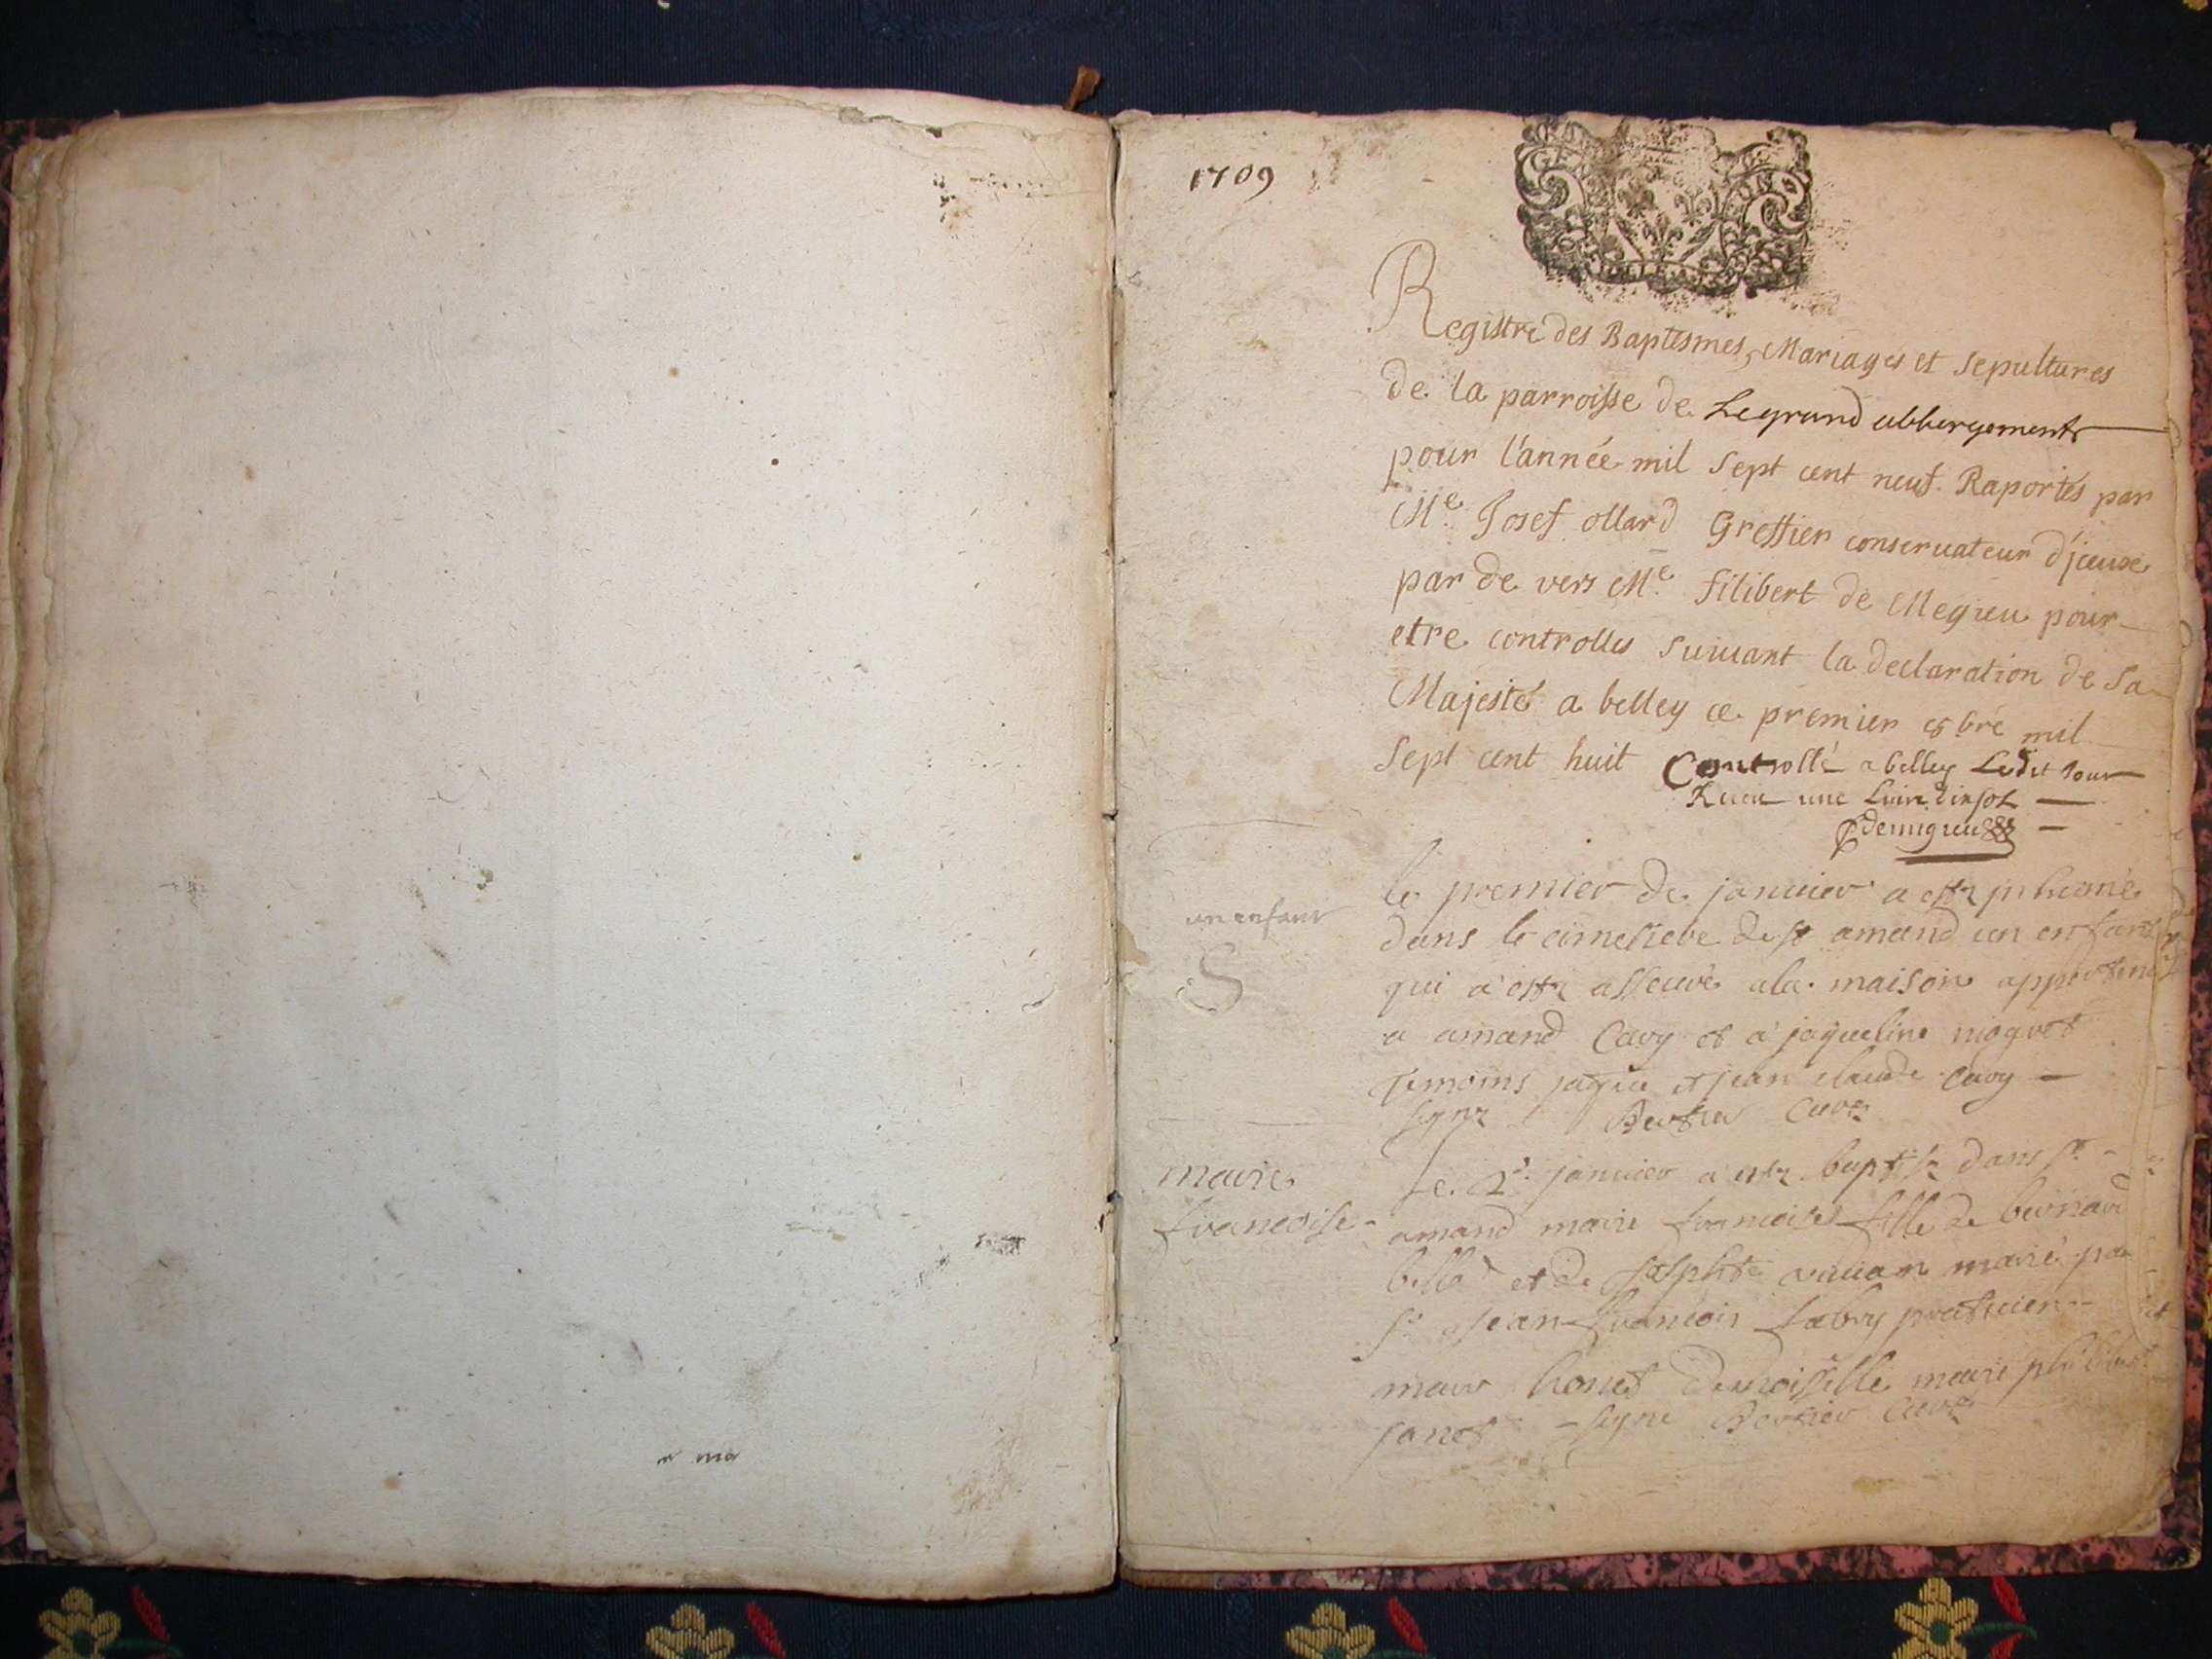 1709
Registre des Baptesmes, Mariages et Sepultures
de la parroisse de Legrand abbergement
pour l'année mil sept cent neuf. Raportés par
Me. Josef ollard Greffier conseruateur d'jceux
par de vers Me. filibert de Megieu pour
etre controlles suiuant la declaration de sa
Majesté a belley ce premier 8bre mil
sept cent huit Controllé a belley Ledit Jour
Receu une Liure dix sol
demigieu
un enfant
S
le premier de januier a este jnhumé
dans le cimetiere de st amand un enfant
qui a este a la maison
a amand Cavy et a jaqueline
temoins jaque et jean claude Cavy
signe Bertier Curé
marie
francoise
le 2e. januier a este baptise dans st
amand marie francoise fille de bernard
et de marié par
sr jean francois fabry praticien
demoiselle marie philiberte
janet signe Bertier Curé
a ma